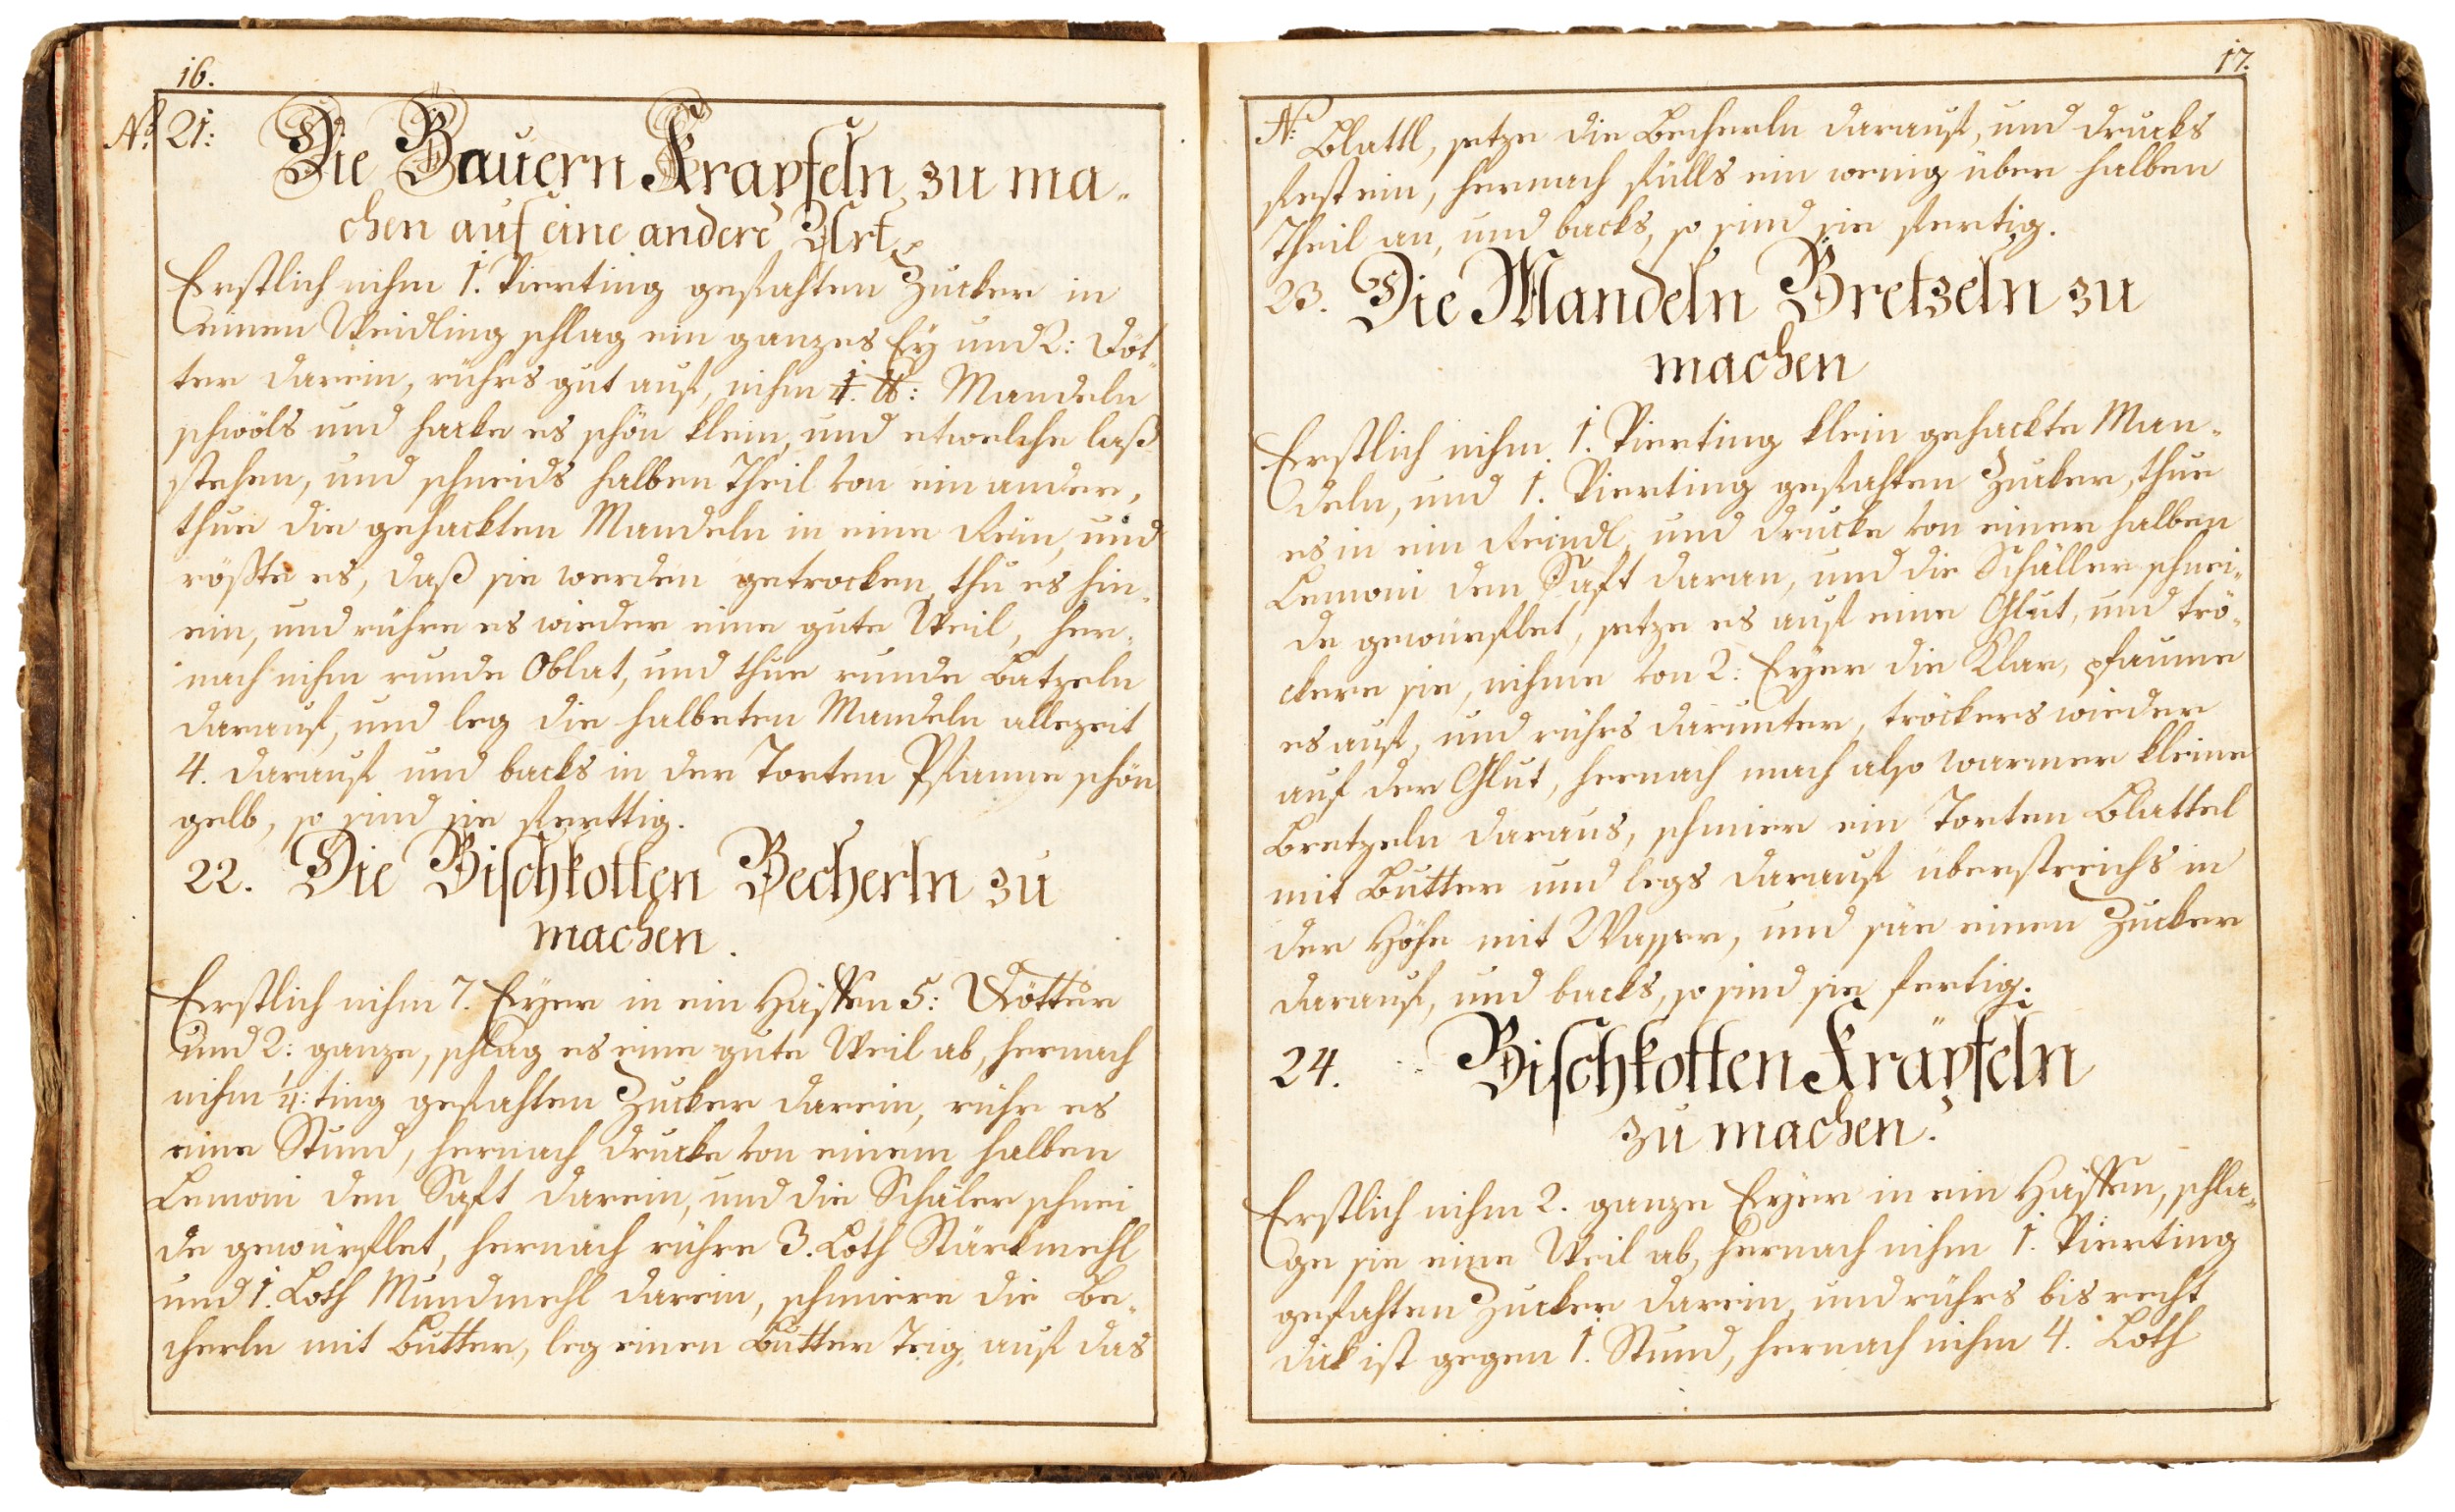 16.
No. 21: Die Bauern Krapfeln zu ma-
chen auf eine andere Art.
Erstlich nihm 1. Vierting gefahten Zucker in
einen Weidling schlag ein ganzes Ey und 2: Döt-
ter darein, rührs gut auf, nihm 1. ℔: Mandeln
schwöls und hacke es schön klein, und etwelche laß
stehen, und schneids halben Theil von ein ander,
thue die gehackten Mandeln in eine Rein, und
röste es, daß sie werden getrocken, thu es hin-
ein, und rühre es wieder eine gute Weil, her-
nach nihm runde Oblat, und thue runde Batzeln
darauf, und leg die halbeten Mandeln allezeit
4. darauf und backs in der Torten Pfanne schön
gelb, so sind sie ferttig.
22. Die Bischkotten Becherln zu
machen.
Erstlich nihm 7. Eyer in ein Häffen 5: Dötter
und 2: ganze, schlag es eine gute Weil ab, hernach
nihm 1/4: ting gefahten Zucker darein, rühr es
eine Stund, hernach drucke von einem halben
Lemoni den Saft darein, und die Schäler schnei
de gewürflet, hernach rühre 3. Loth Stärkmehl
und 1. Loth Mundmehl darein, schmiere die Be-
cherln mit Butter, leg einen Butter Teig auf das
17.
No: Blattl, setze die Becherln darauf, und drucks
fest ein, hernach fülls ein wenig über halben
Theil an, und backs, so sind sie fertig.
23. Die Mandeln Bretzeln zu
machen
Erstlich nihm 1. Vierting klein gehackte Man-
deln, und 1. Vierting gefahten Zucker, thue
es in ein Reindl, und drucke von einer halben
Lemoni den Saft daran, und die Schäller schnei-
de gewürflet, setze es auf eine Glut, und trö-
ckere sie, nihme von 2: Eyer die Klar, pfaume
es auf, und rührs darunter, tröckers wieder
auf der Glut, hernach mach also warmer kleine
Bretzeln daraus, schmier ein Torten Blattel
mit Butter und legs darauf überstreichs in
der Höhe mit Wasser, und säe einen Zucker
darauf, und backs, so sind sie fertig.
24. Bischkotten Kräpfeln
zu machen.
Erstlich nihm 2. ganze Eyer in ein Häffen, schla-
ge sie eine Weil ab, hernach nihm 1. Vierting
gefahten Zucker darein, und rührs bis recht
dick ist gegen 1. Stund, hernach nihm 4. Loth